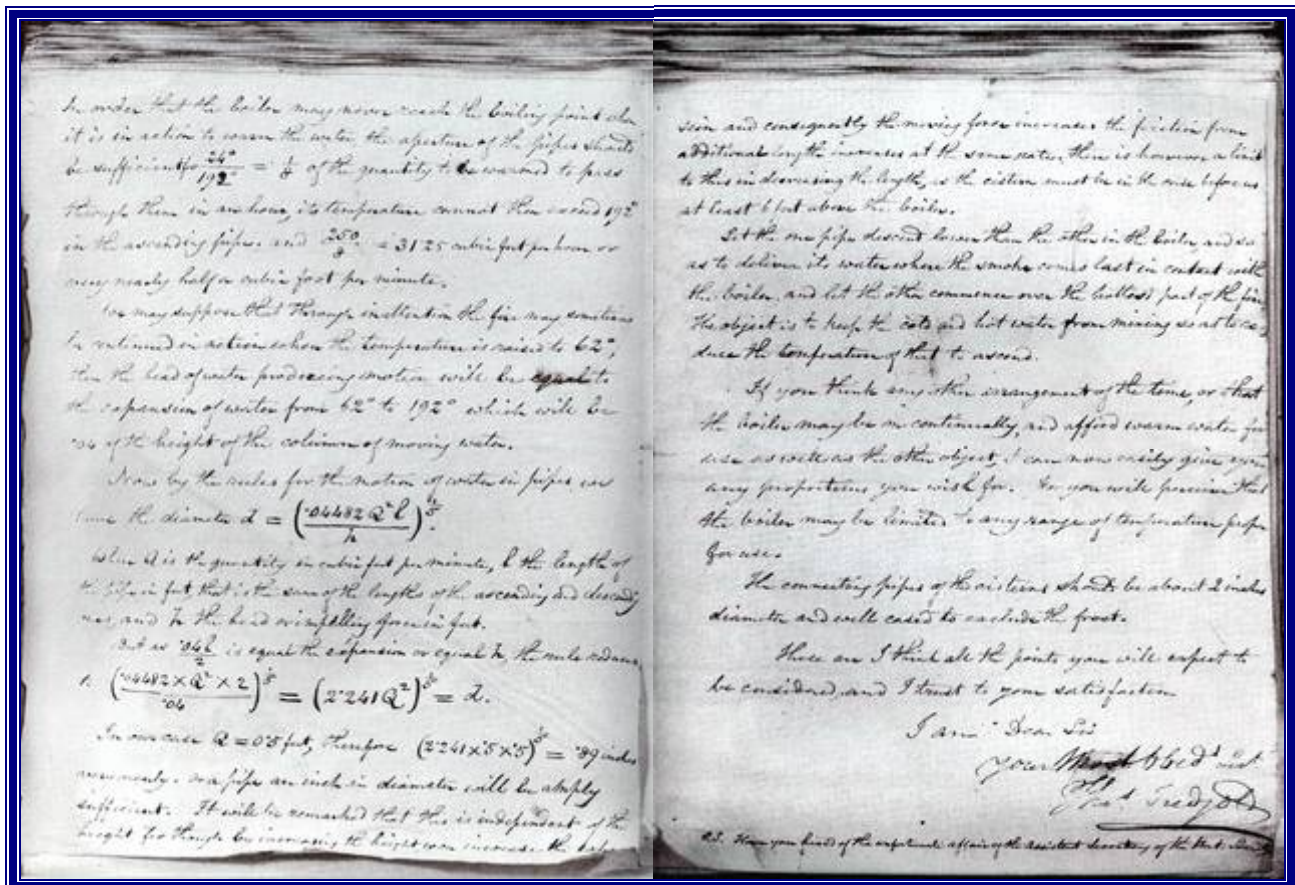 In order that the boiler may never reach the boiling point when
it is in action to warm the water, the aperture of the pipes should
be sufficient for 24°/192° = 1/8 of the quantity to be warmed to pass
through them in an hour, its temperature cannot then exceed 192°
in the ascending pipe. and 250/8 = 31·25 cubic feet per hour or
very nearly half a cubic foot per minute.
We may suppose that through inattention the fire may sometimes
be continued in action when the temperature is raised to 62°,
then the head of water producing motion will be equal to
the expansion of water from 62° to 192° which will be
·04 of the height of the column of moving water.
Now by the rules for the motion of water in pipes we
have the diameter d = (·04482 Q² l / h)^1/5.
when Q is the quantity in cubic feet per minute, l the length of
the pipe in feet, that is the sum of the lengths of the ascending and descending
ones, and h the head or impelling force in feet.
But as ·04 l/2 is equal the expansion or equal h, the rule reduces
to (·04482 × Q² × 2 / ·04)^1/5 = (2·241 Q²)^1/5 = d.
In our case Q = 0·5 feet, therefore (2·241 × ·5 × ·5)^1/5 = ·89 inches
very nearly. or a pipe an inch in diameter will be amply
sufficient. It will be remarked that this is independent of the
height for though by increasing the height we increase the expan
sion and consequently the moving force increases the friction from
additional length increases at the same rate, there is however a limit
to this in decreasing the length, as the cistern must be in the case before us
at least 6 feet above the boiler.
Let the one pipe descend lower than the other in the boiler, and so
as to deliver its water where the smoke comes last in contact with
the boiler, and let the other commence over the hottest part of the fire,
the object is to keep the cold and hot water from mixing so as to re-
duce the temperature of that to ascend.
If you think any other arrangement of the time, or that
the boiler may be in continually, and afford warm water for
use as well as the other object, I can now easily give you
any proportions you wish for. For you will perceive that
the boiler may be limited to any range of temperature proper
for use.
The connecting pipes of the cisterns should be about 2 inches
diameter and well cased to exclude the frost.
These are I think all the points you will expect to
be considered, and I trust to your satisfaction
I am Dear Sir
your Most Obedt Servt
Thos Tredgold
P.S. Have you heard of the unfortunate affair of the assistant Secretary of the